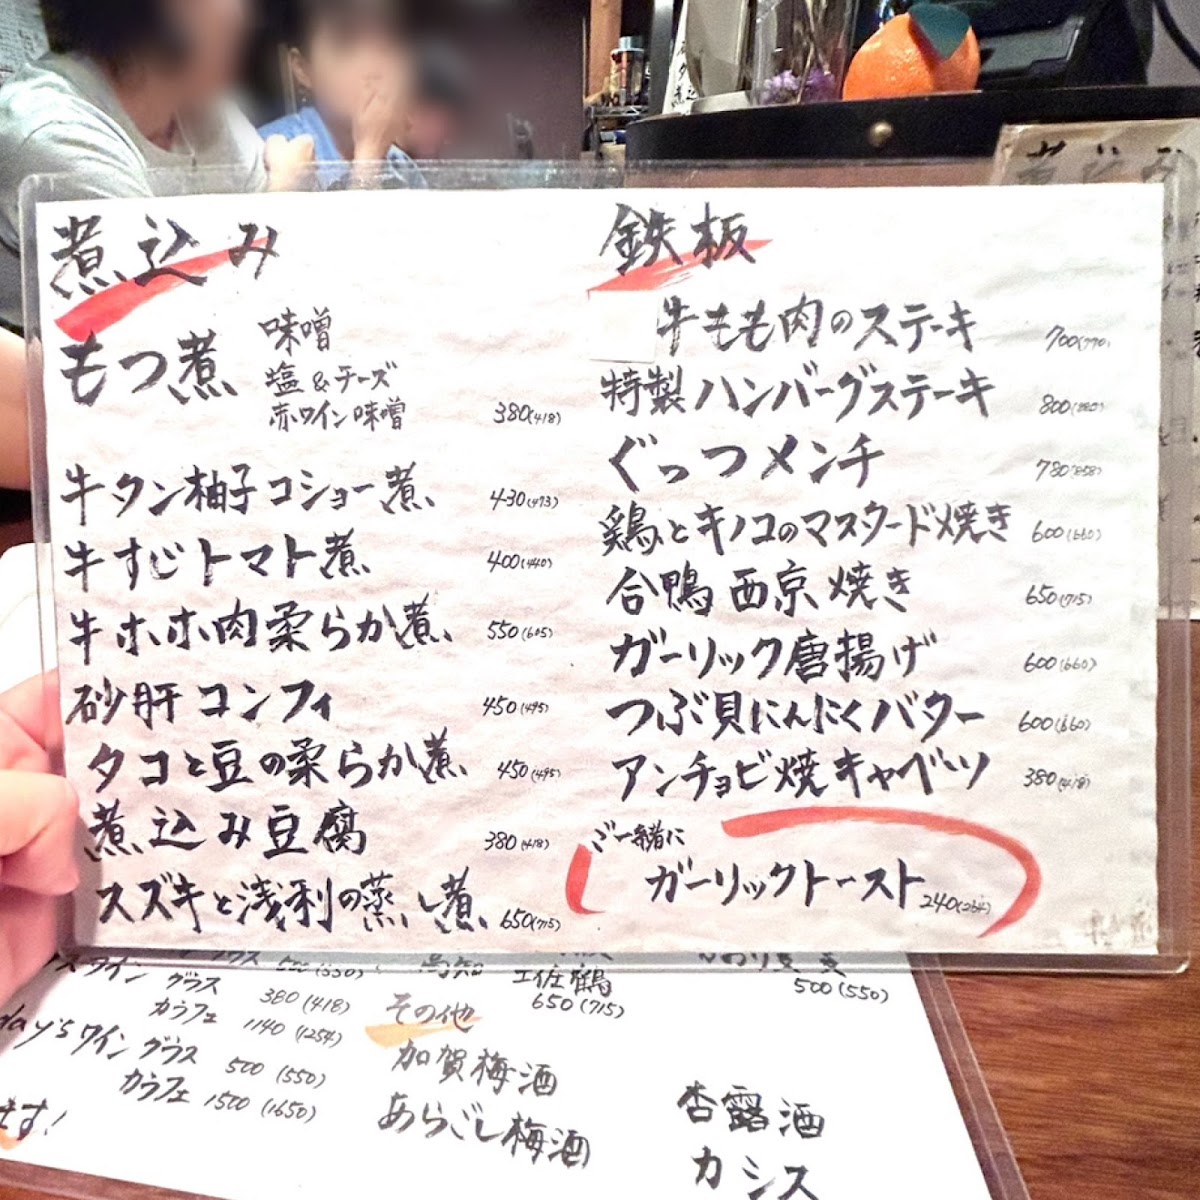 煮込み
もつ煮
味噌
塩&チーズ
赤ワイン味噌 380(418)
牛タン柚子コショー煮 430(473)
牛すじトマト煮 400(440)
牛ホホ肉柔らか煮 550(605)
砂肝コンフィ 450(495)
タコと豆の柔らか煮 450(495)
煮込み豆腐 380(418)
スズキと浅利の蒸し煮 650(715)
鉄板
牛もも肉のステーキ 700(770)
特製ハンバーグステーキ 800(880)
ぐっつメンチ 780(858)
鶏とキノコのマスタード焼き 600(660)
合鴨西京焼き 650(715)
ガーリック唐揚げ 600(660)
つぶ貝にんにくバター 600(660)
アンチョビ焼キャベツ 380(418)
ご一緒に
ガーリックトースト 240(264)
煮込み
グラス 500(550)
ワイン グラス 380(418)
カラフェ 1140(1254)
day'sワイン グラス 500(550)
カラフェ 1500(1650)
ます!
土佐鶴
650(715)
500(550)
その他
加賀梅酒
あらごし梅酒
杏露酒
カシス